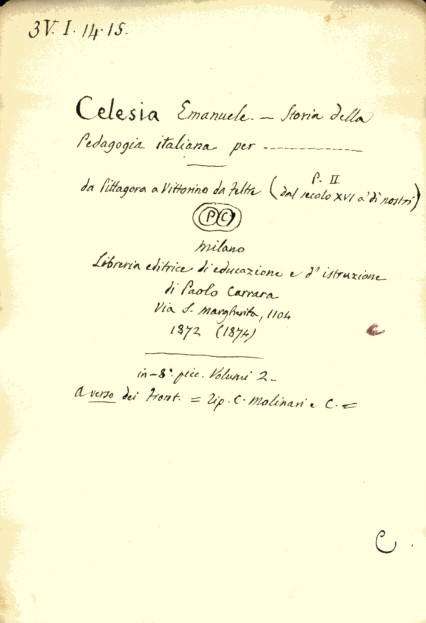 3V. I. 14. 15.
Celesia Emanuele. — Storia della
Pedagogia italiana per ------------
da Pittagora a Vittorino da Feltre ( P. II dal secolo XVI a' dì nostri )
PC
Milano
Libreria editrice di educazione e d' istruzione
di Paolo Carrara
Via S. Margherita, 1104
1872 (1874)
in-8° picc. Volumi 2-
A verso dei Front. = Tip. C. Molinari e C. =
C.